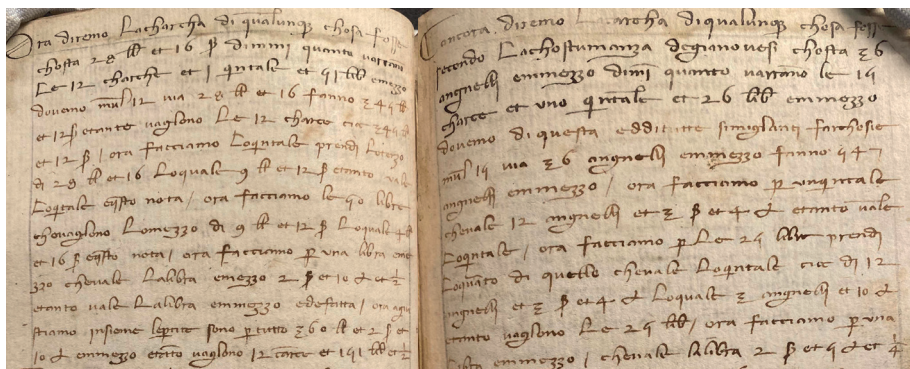 Ora diremo Lacharcha di qualunqȝ chosa fosse
chosta 28 lb et 16 ß dimmi quanto varrano
Le 12 charche et 1 qintale et 51 lbb emmezzo
doveno mul 12 via 28 lb et 16 fanno 345 lb
et 12 ß etanto vaglono Le 12 charce cioe 345 lb
et 12 ß / ora facciamo Loqintale prendi Loterzo
di 28 lb et 16 Loquale 9 lb et 12 ß etanto vale
Loqitale eqsto nota / ora facciamo le 50 libre
chevaglono Lomezzo di 9 lb et 12 ß Loquale 4 lb
et 16 ß eqsto nota / ora facciamo p una libra eme
zzo chevale Lalibra emezzo 2 ß et 10 d et 1/2
etanto vale Lalibra emmezzo edesfatta / ora agiu
stiamo insieme leptite sono ptutto 360 lb et 2 ß et
10 d emmezzo etato vaglono 12 carce et 151 lbb et 1/2
ancora diremo diqualunqȝ chosa fosse
secondo Lachostumanza degianovesi chosta 36
angnelli emmezzo dimi quanto varrano le 15
charce et uno qintale et 26 lbb emmezzo
dovemo di questa edditutte simiglanti farchosie
mul 15 via 36 angnelli emmezzo fanno 547
angnelli emmezzo / ora facciamo p unqintale
chevale 12 angnelli et 3 ß et 4 d etanto vale
Loqintale / ora facciamo p Le 25 libre prendi
loquarto di quello chevale Loqintale cioe di 12
angnelli et 3 ß et 4 d Loquale 3 angnelli et 10 d
etanto vaglono Le 25 lbb / ora facciamo p una
libra emmezzo / chevale lalibra 2 ß et 5 d et 1/4